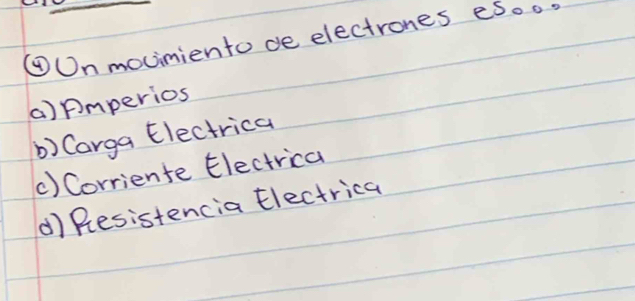 ④Un movimiento de electrones es...
a) Amperios
b) Carga Electrica
c) Corriente Electrica
d) Resistencia Electrica